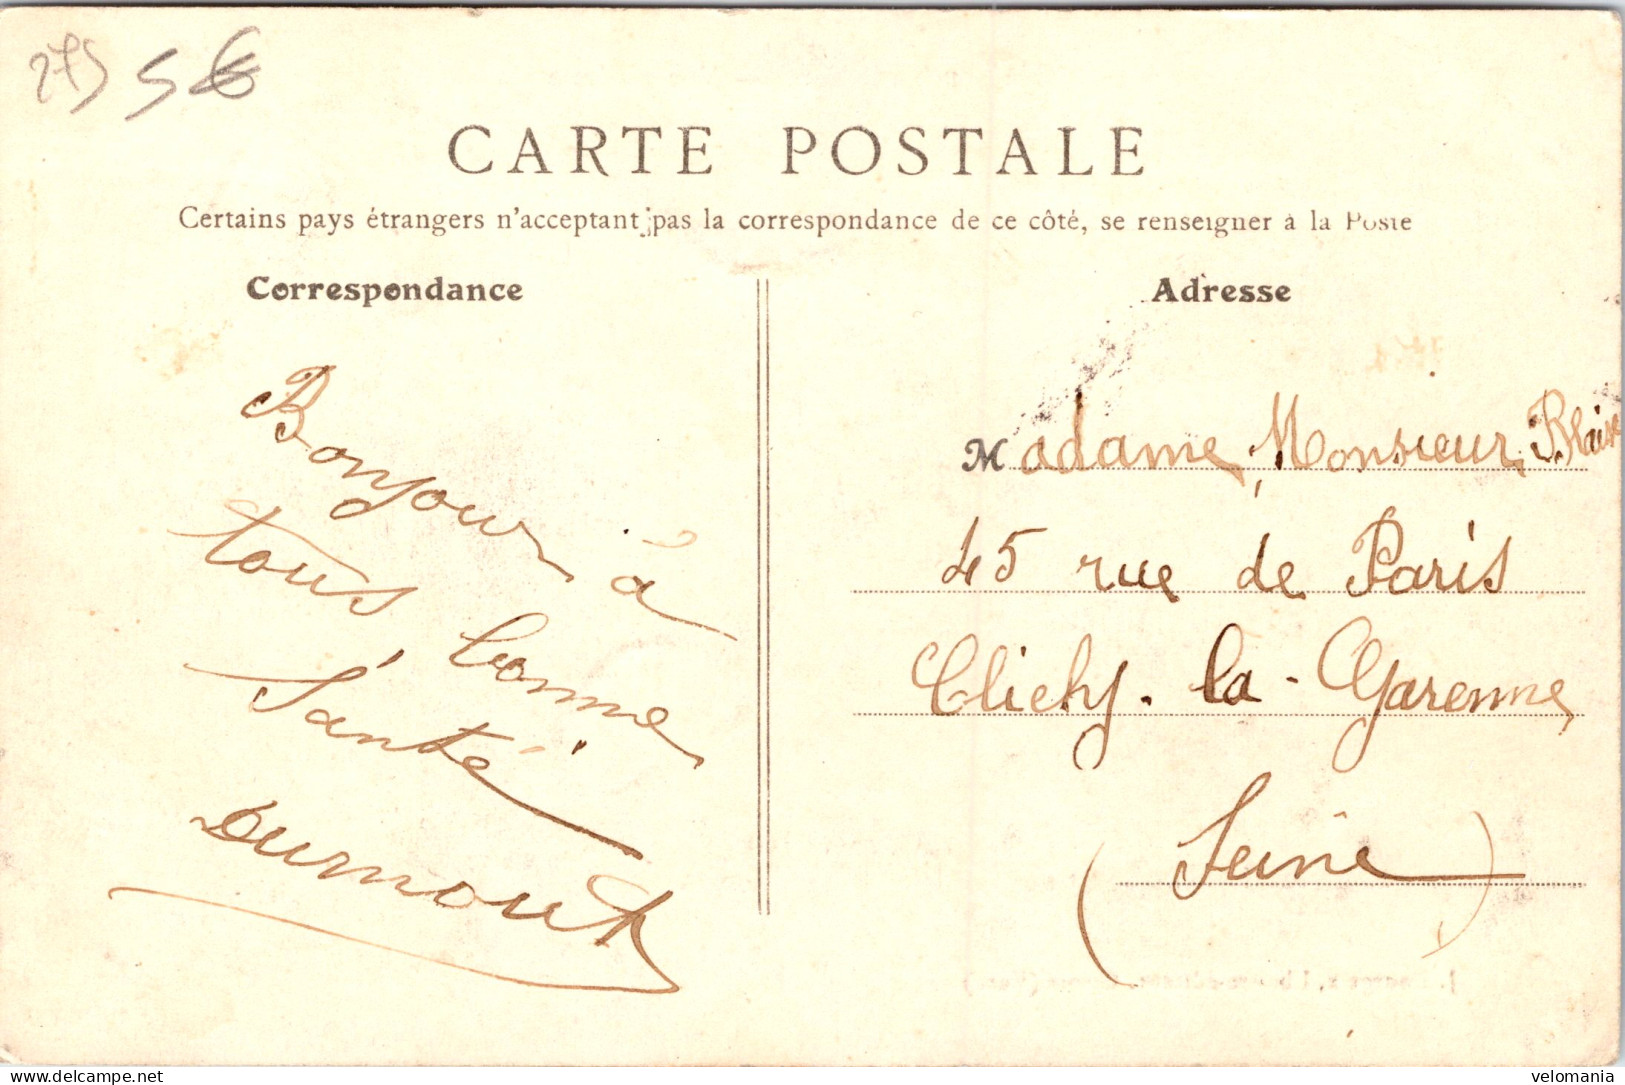 5€
CARTE POSTALE
Certains pays étrangers n'acceptant pas la correspondance de ce côté, se renseigner à la Poste
Correspondance
Bonjour à
tous bonne
Santé
Adresse
Madame, Monsieur, Blaise
45 rue de Paris
Clichy-la-Garenne
(Seine)
https://www.delcampe.net
velomania